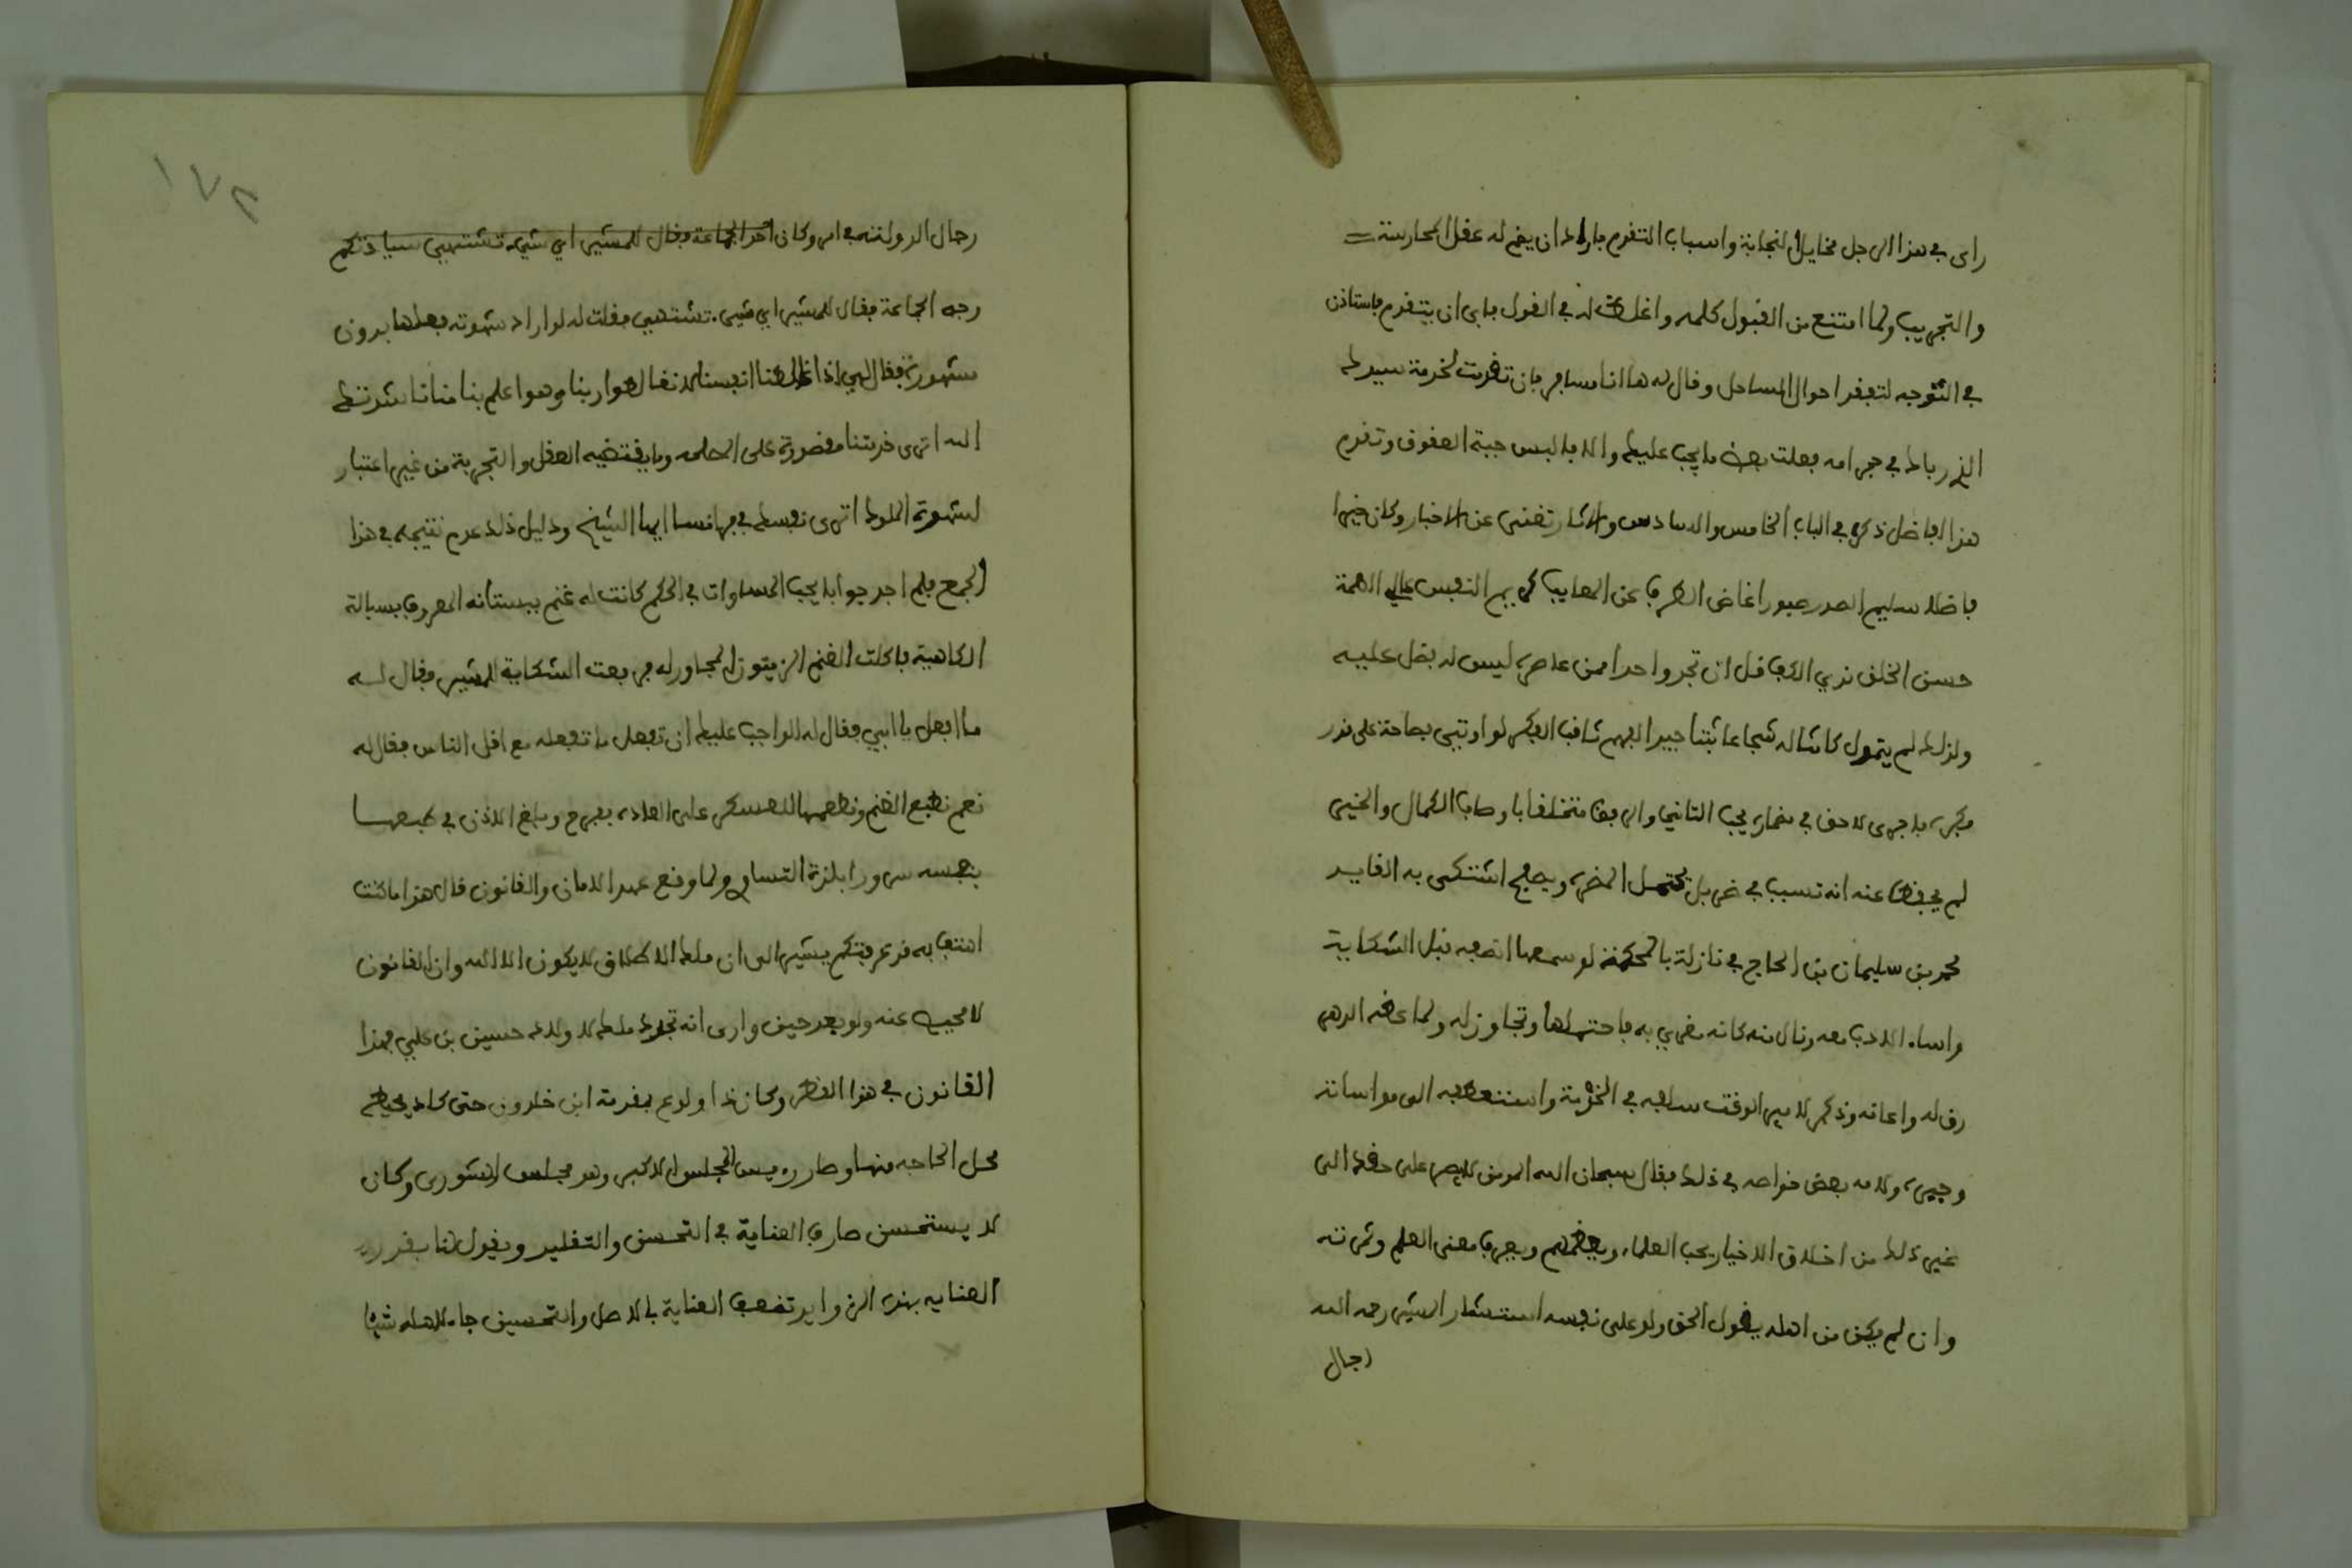 راى في هذا الرجل مخايل النجابة واسباب التقدم فاراد ان يضم له عقل الممارسة
والتجريب ولما امتنع من القبول كلمه واغلظ له في القول فابى ان يتقدم فاستاذن
في التوجه لتفقد احوال الساحل وقال له ها انا مسافر فان تقدمت لخدمة سيدك
الذي رباك في حجرامه فعلت بعض ما يجب عليك والا فالبس جبة العقوق وتقدم
هذا الفاضل ذكره في الباب الخامس والسادس والاثار تغني عن الاخبار وكان خيرا
فاضلا سليم الصدر صبورا غاض الطرف عن المعايب كريم النفس عالي الهمة
حسن الخلق ندي الكف قل ان تجد واحدا ممن عاصره ليس له فضل عليه
ولذلك لم يتمول كاشاله شجاعا ثبتا جيد الفهم ثاقب الفكر لو اوتي فصاحة على قدر
فكره ما جرى لاحق في مضماره يحب التاني والرفق متخلقا باوصاف الكمال والخير
لم يحفظ عنه انه تسبب في ضر بل يحتمل المضره ويصفح اشتكى به القايد
محمد بن سليمان بن الحاج في نازلة بالمحكمة لو سمعها انصفه قبل الشكاية
واساء الادب معه ونال منه كانه مغري به فاحتملها وتجاوز له ولما عضه الدهر
رق له واعانه وذكر لامير الوقت سالفه في الخدمة واستعطفه الى مواساته
وجبره ولامه بعض خواصه في ذلك فقال سبحان الله المومن لا يصر على حقد الى
غير ذلك من اخلاق الاخيار يحب العلماء ويعظمهم ويعرف معنى العلم وثمرته
وان لم يكن من اهله يقول الحق ولو على نفسه استشار المشير رحمه الله
رجال
١٧٢
رجال الدولة في امر وكان احد الجماعة فقال للمشير اي شيء تشتهي سيادتكم
وجه الجماعة فقال للمشير اي شيء تشتهي فقلت له لو اراد شهوته فعلها بدون
شهورة فقال لي اذا غالطنا انفسنا لا نغالطوا ربنا وهو اعلم بنا منا ناشدتك
الله اترى خدمتنا مقصورة على المصلحه وما يقتضيه العقل والتجربة من غير اعتبار
لشهوة الملوك اترى نفسك في فرانسا ايها الشيخ ودليل ذلك عدم نتيجه في هذا
الجمع فلم اجد جوابا يحب المساوات في الحكم كانت له غنم ببستانه المعروف بسبالة
الكاهية فاكلت الغنم الزيتون المجاور له فرفعت الشكاية للمشير فقال له
ما افعل يا ابي فقال له الواجب عليك ان تفعل ما تفعله مع اقل الناس فقال له
نعم نطبع الغنم ونطعمها للعسكر على العاده ففرح وبلغ الاذن في طبعها
بنفسه سرورا بلذة التساوي ولما وقع عهد الامان والقانون قال هذا ما كنت
اهتف به قد عرفتكم يشير الى ان ملك الاطلاق لا يكون الا لله وان القانون
لا محيص عنه ولو بعد حين وارى انه تجدد ملك لاولاد حسين بن علي بهذا
القانون في هذا القطر وكان ذا ولوع بمقدمة ابن خلدون حتى كاد يحفظ
محل الحاجه منها وصار رءيس المجلس الاكبر وهو مجلس الشورى وكان
لا يستحسن صارف العناية في التحسين والتقليد ويقول لنا بقدر
العنايه بهذه الزوايد تضعف العناية بالاصل والتحسين جاء لاهله شيئا